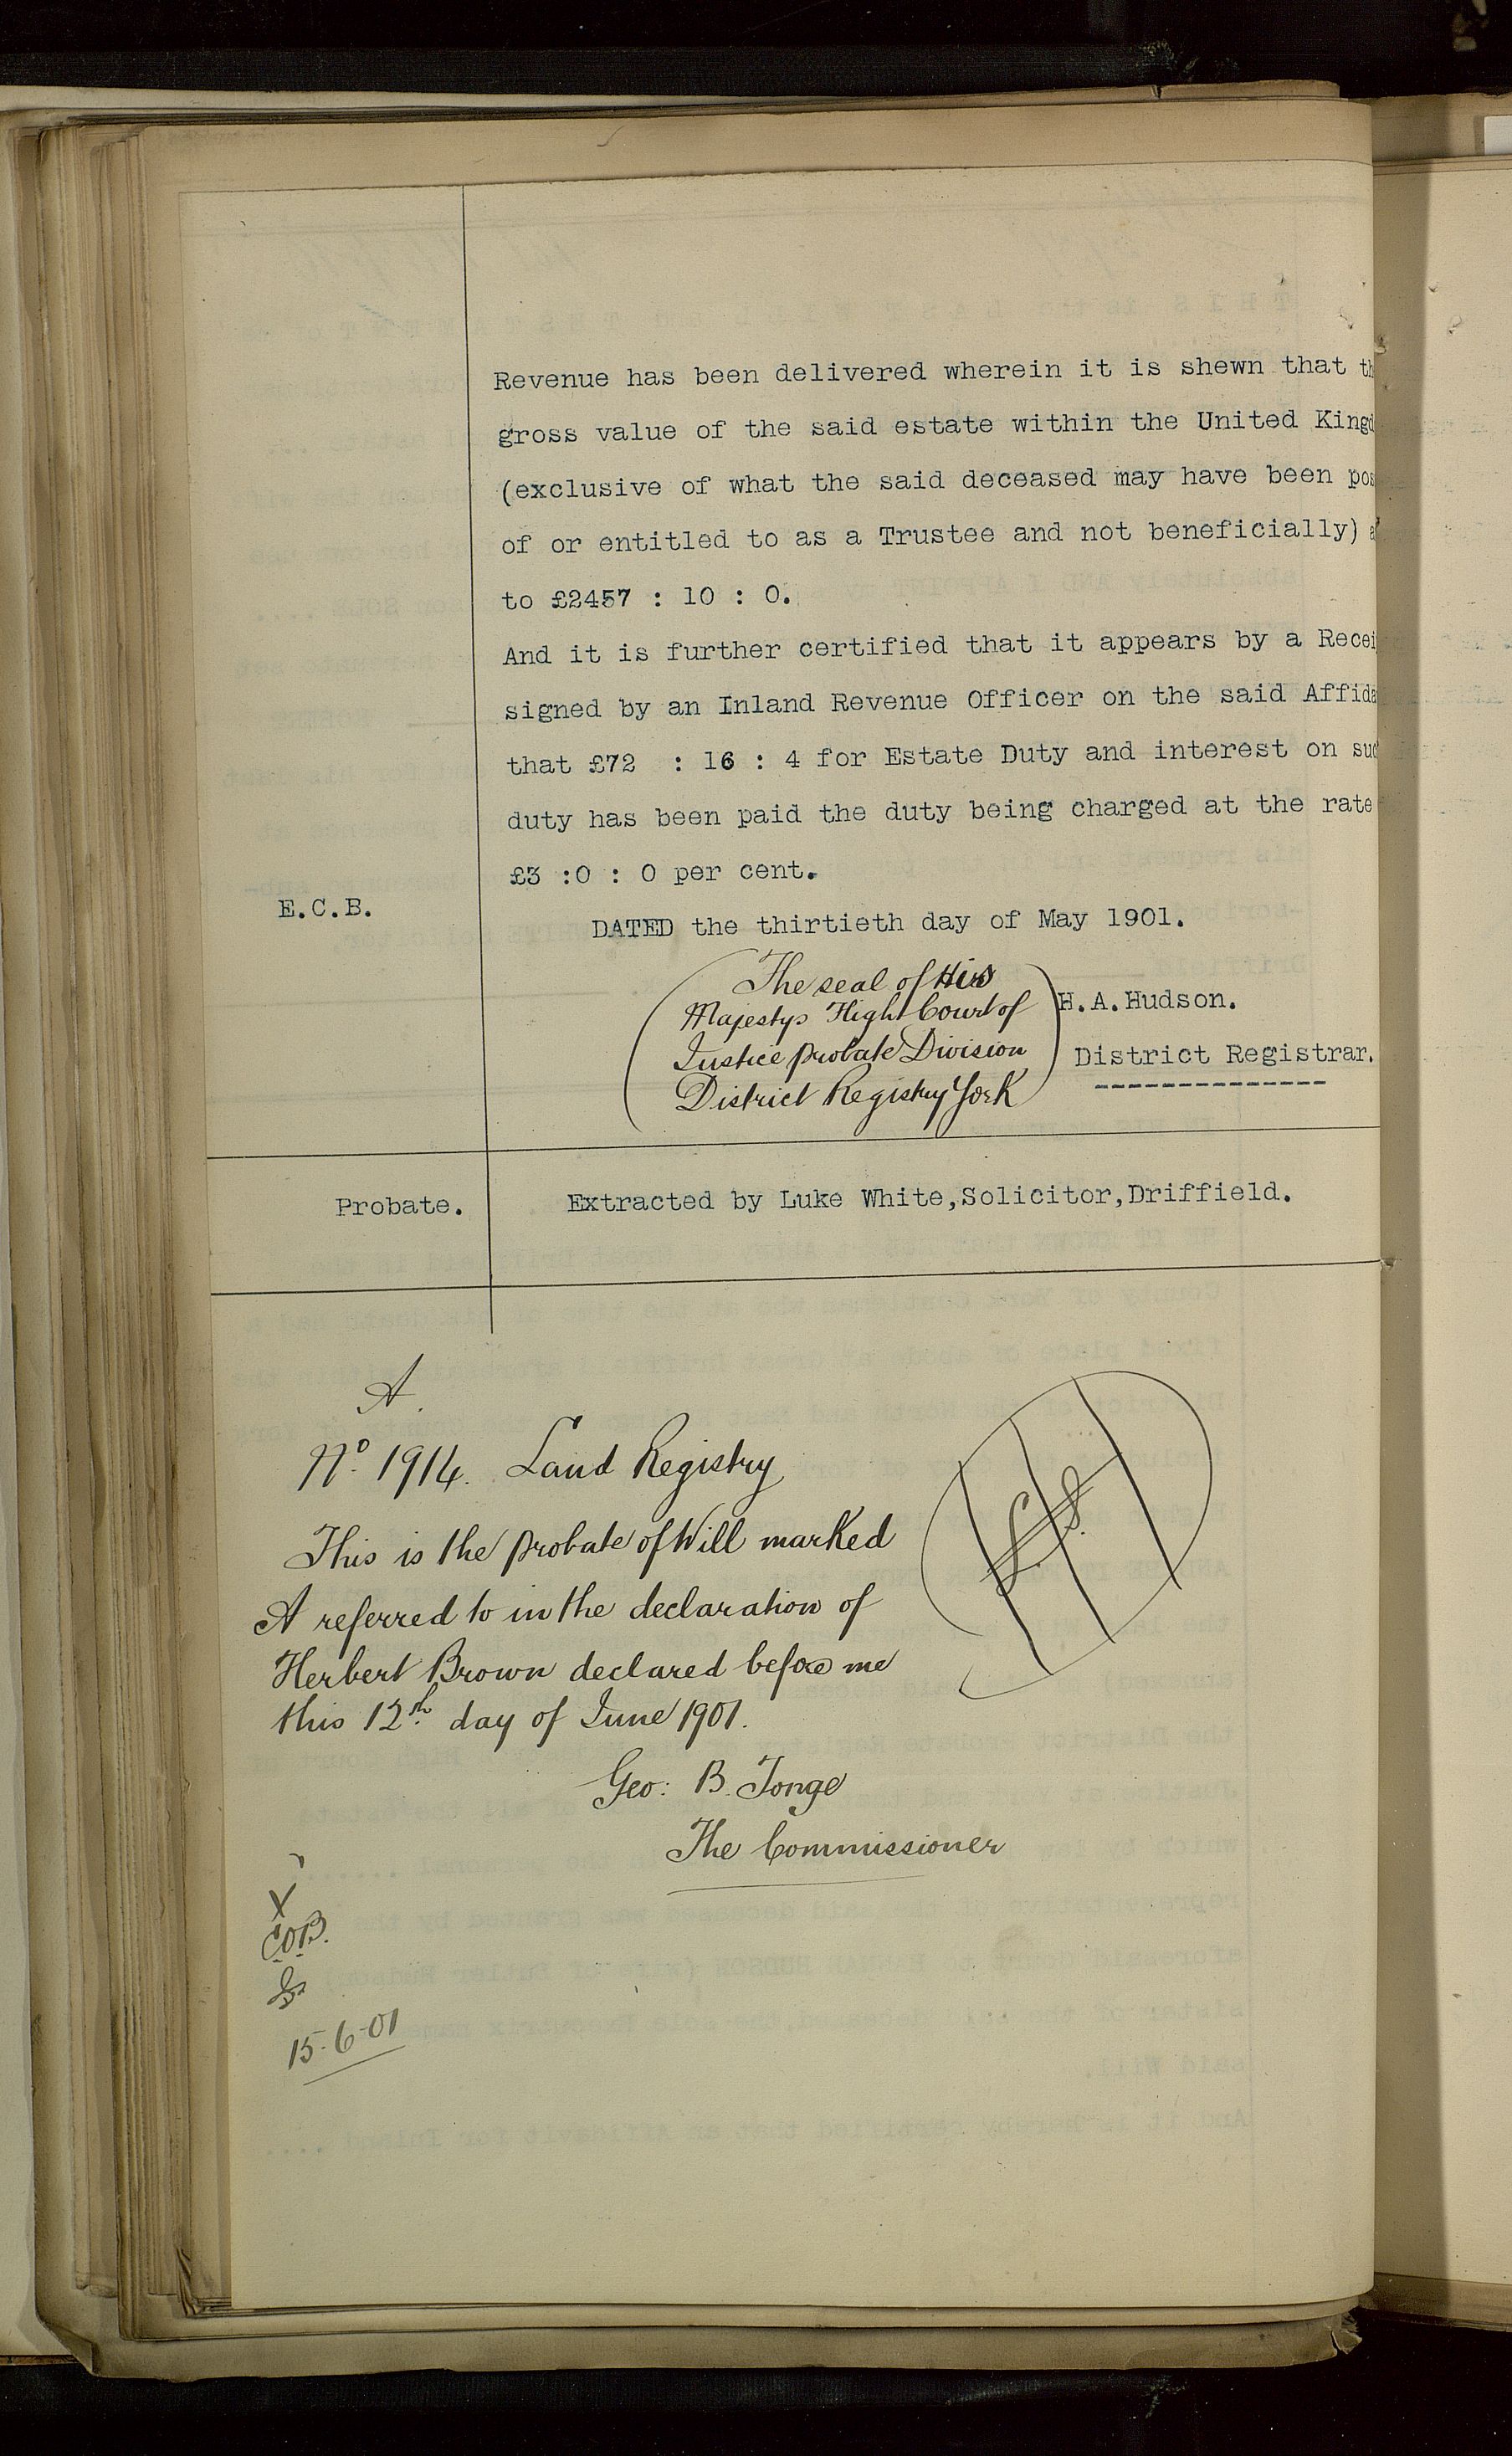 Revenue has been delivered wherein it is shewn that th
gross value of the said estate within the United Kingd
(exclusive of what the said deceased may have been pos
of or entitled to as a Trustee and not beneficially) a
to £2457 : 10 : 0.
And it is further certified that it appears by a Recei
signed by an Inland Revenue Officer on the said Affida
that £72 : 16 : 4 for Estate Duty and interest on suc
duty has been paid the duty being charged at the rate
£3 :0 : 0 per cent.
E.C.B.
DATED the thirtieth day of May 1901.
The seal of His
Majestys High Court of
Justice Probate Division
District Registry York
H.A.Hudson.
District Registrar.
Probate.
Extracted by Luke White,Solicitor,Driffield.
A.
No. 1914. Land Registry
This is the probate of Will marked
A referred to in the declaration of
Herbert Brown declared before me
this 12th day of June 1901.
Geo: B. Tonge
The Commissioner
L.S.
X
C.O.B.
15-6-01